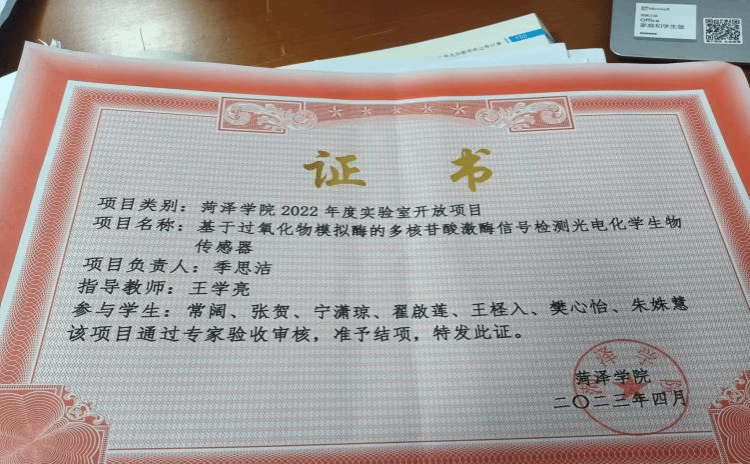 Microsoft
Office
家庭和学生版
150
证 书
项目类别：菏泽学院 2022 年度实验室开放项目
项目名称：基于过氧化物模拟酶的多核苷酸激酶信号检测光电化学生物
传感器
项目负责人：季思洁
指导教师：王学亮
参与学生：常阔、张贺、宁潇琼、翟啟莲、王柽入、樊心怡、朱姝慧
该项目通过专家验收审核，准予结项，特发此证。
菏泽学院
二〇二三年四月